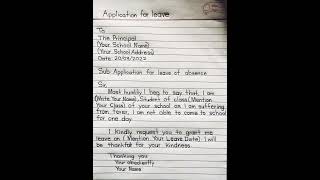 Application for leave
To
The Principal
(Your School Name)
(Your School Address)
Date: 20/09/2022
Sub: Application for leave of absence
Sir,
Most humbly I beg to say that, I am
(Write Your Name), Student of class (Mention
Your Class) of your school an I am suffering
from fever, I am not able to come to school
for one day.
I Kindly request you to grant me
leave on (Mention Your Leave Date) I will
be thankful for your kindness.
Thanking you
Your obediently
Your Name